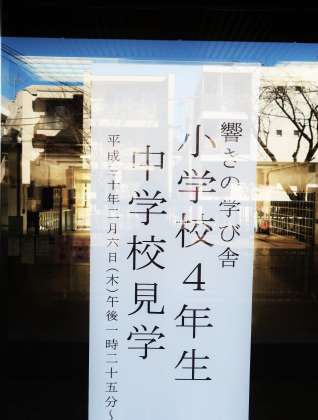 響きの学び舎
小学校4年生
中学校見学
平成二十年三月六日(木)午後一時二十五分~